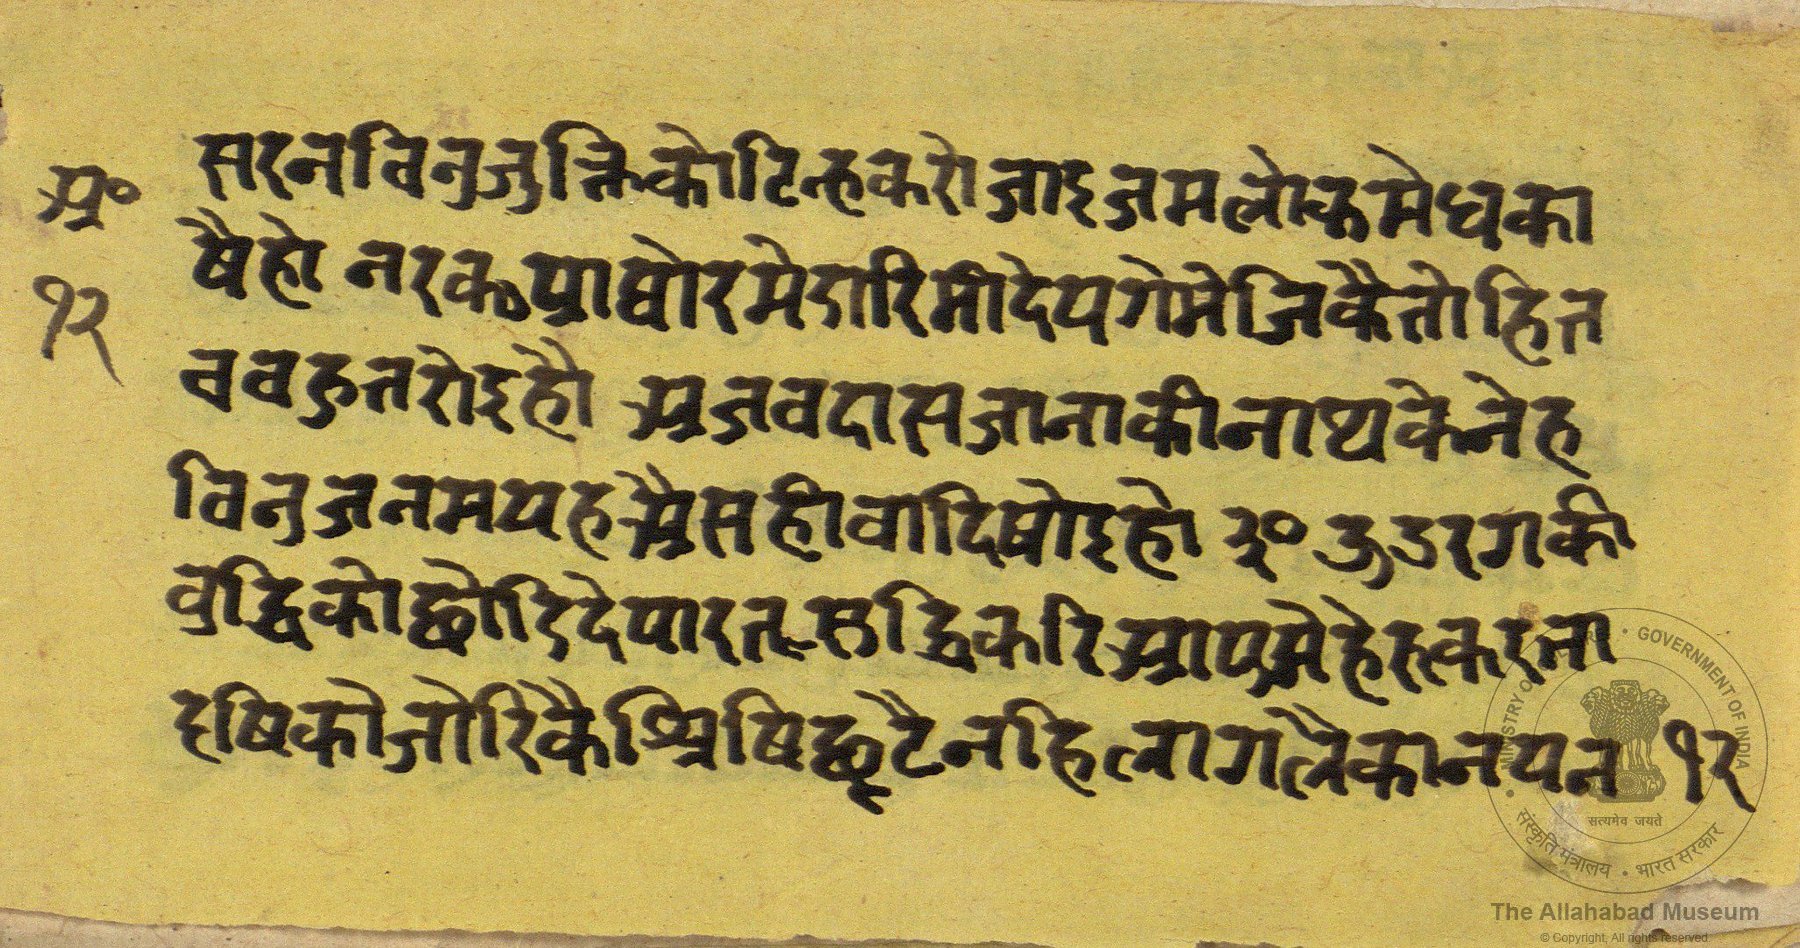 अ०
१२
सरनविनुजुक्तिकोटिन्हकरो जाइजमलोकमेधका
षैहो नरकप्राघोरमेडारिमीदेयगेमेजिकैतोहित
ववहुतरोइहौ अजवदासजानाकीनाथकेनेह
विनुजनमयहअैसहीवादिषोइहो ३० ऊडरगकी
वुद्धिकोछोडिदेपारतसुद्धिकरिआपमेहेरुकरना
दृषिकोजोरिकैश्रिषिछूटैनहिलागलैकानयन १२
MINISTRY OF CULTURE • GOVERNMENT OF INDIA
सत्यमेव जयते
संस्कृति मंत्रालय • भारत सरकार
The Allahabad Museum
© Copyright, All rights reserved